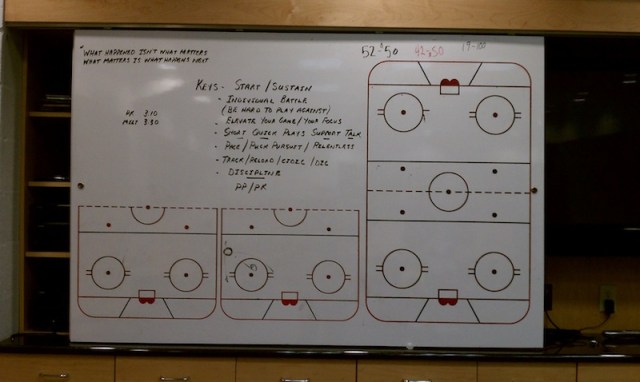 "WHAT HAPPENED ISN'T WHAT MATTERS
WHAT MATTERS IS WHAT HAPPENS NEXT"
52 - 50
42-50
19-100
KEYS - START / SUSTAIN
- INDIVIDUAL BATTLE
(BE HARD TO PLAY AGAINST)
- ELEVATE YOUR GAME / YOUR FOCUS
- SHORT QUICK PLAYS SUPPORT TALK
- PACE / PUCK PURSUIT / RELENTLESS
- TRACK / RELOAD /
- DISCIPLINE
PP / PK
3:10
MEET 3:30